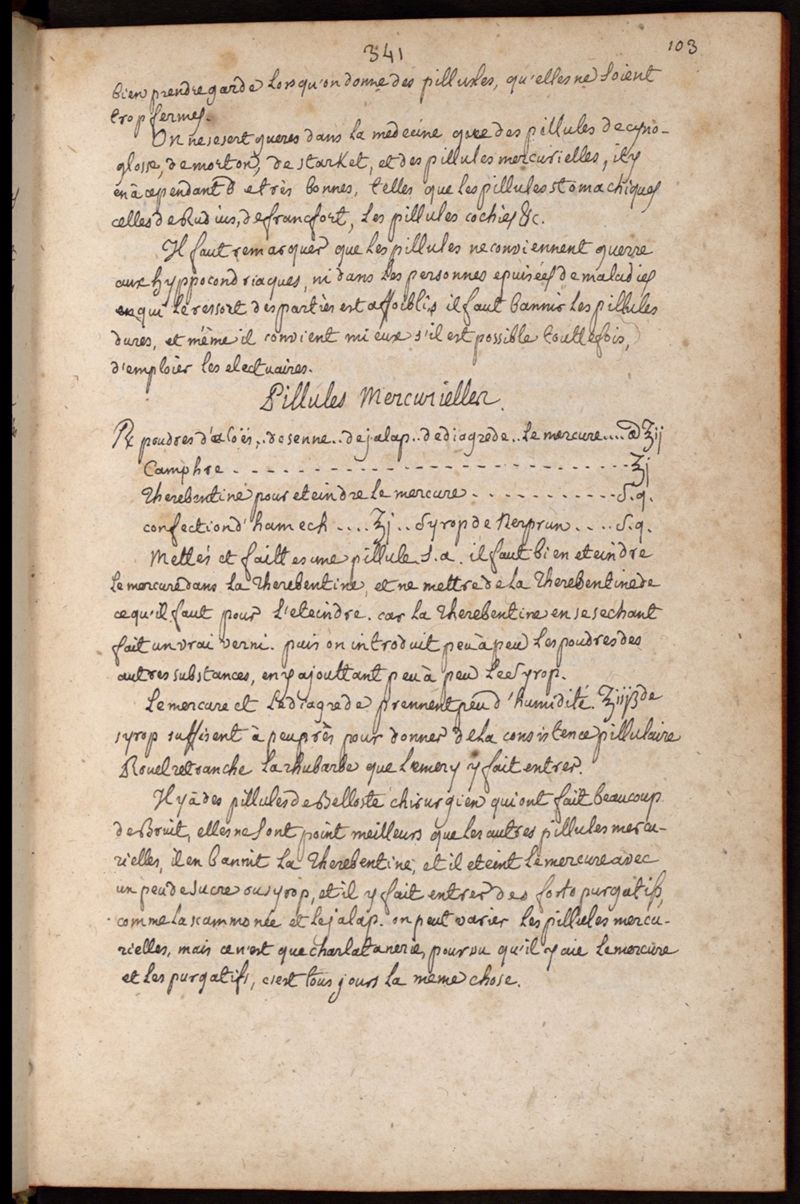 341
103
bien prendre garde lorsqu'on donne des pillules, qu'elles ne soient
trop fermes.
On ne se sert gueres dans la medecine que des pillules de cyno-
glosse, de morton, de starket, et des pillules mercurielles, il y
en à cependant d etrès bonnes, telles que les pillules stomachiques
celles de Rudius, de francfort, les pillules cochies &c.
Il faut remarquer que les pillules ne conviennent guerre
aux hyppocondriaques, ni dans les personnes epuisées de maladies
en qui le ressort des partiés est affoiblis il faut bannir les pillules
dures, et même il convient mieux s'il est possible touttefois,
d'emploier les electuaires.
Pillules Mercurielles.
℞ poudres d'aloës,.. de senne.. de jalap.. de diagrede.. le mercure.... a ʒij
Camphre - - - - - - - - - - - - - - - - - - - - - - - ʒj
Therebentine pour eteindre le mercure . . . . . . . . . . . S.q.
confection d'hamech .... ʒj .. Syrop de Nerprun .... S.q.
Mettés et faittes une pillule S.a. il faut bien eteindre
le mercure dans la Therebentine, et ne mettre de la Therebentine de
ce qu'il faut pour l'eteindre. car la Therebentine en se sechant
fait un vrai verni. puis on introduit peu à peu les poudres des
autres substances, en y ajouttant peu à peu le Syrop.
Le mercure et le diagrede prennent peu d'humidité. ʒiijß de
syrop suffisent à peu près pour donner de la consistence pillulaire
Rouel retranche la rhubarbe que Lemery y fait entrer.
Il y à des pillules de Belloste chirurgien qui ont fait beaucoup
de Bruit, elles ne sont point meilleurs que les autres pillules mercu-
rielles, il en bannit la Therebentine, et il eteint le mercure avec
un peu de sucre ou syrop, et il y fait entrer des forts purgatifs,
comme la scammonée et le jalap. on peut varier les pillules mercu-
rielles, mais ce n'est que charlatanerie, pourvu qu'il y aie le mercure
et les purgatifs, c'est tous jours la même chose.